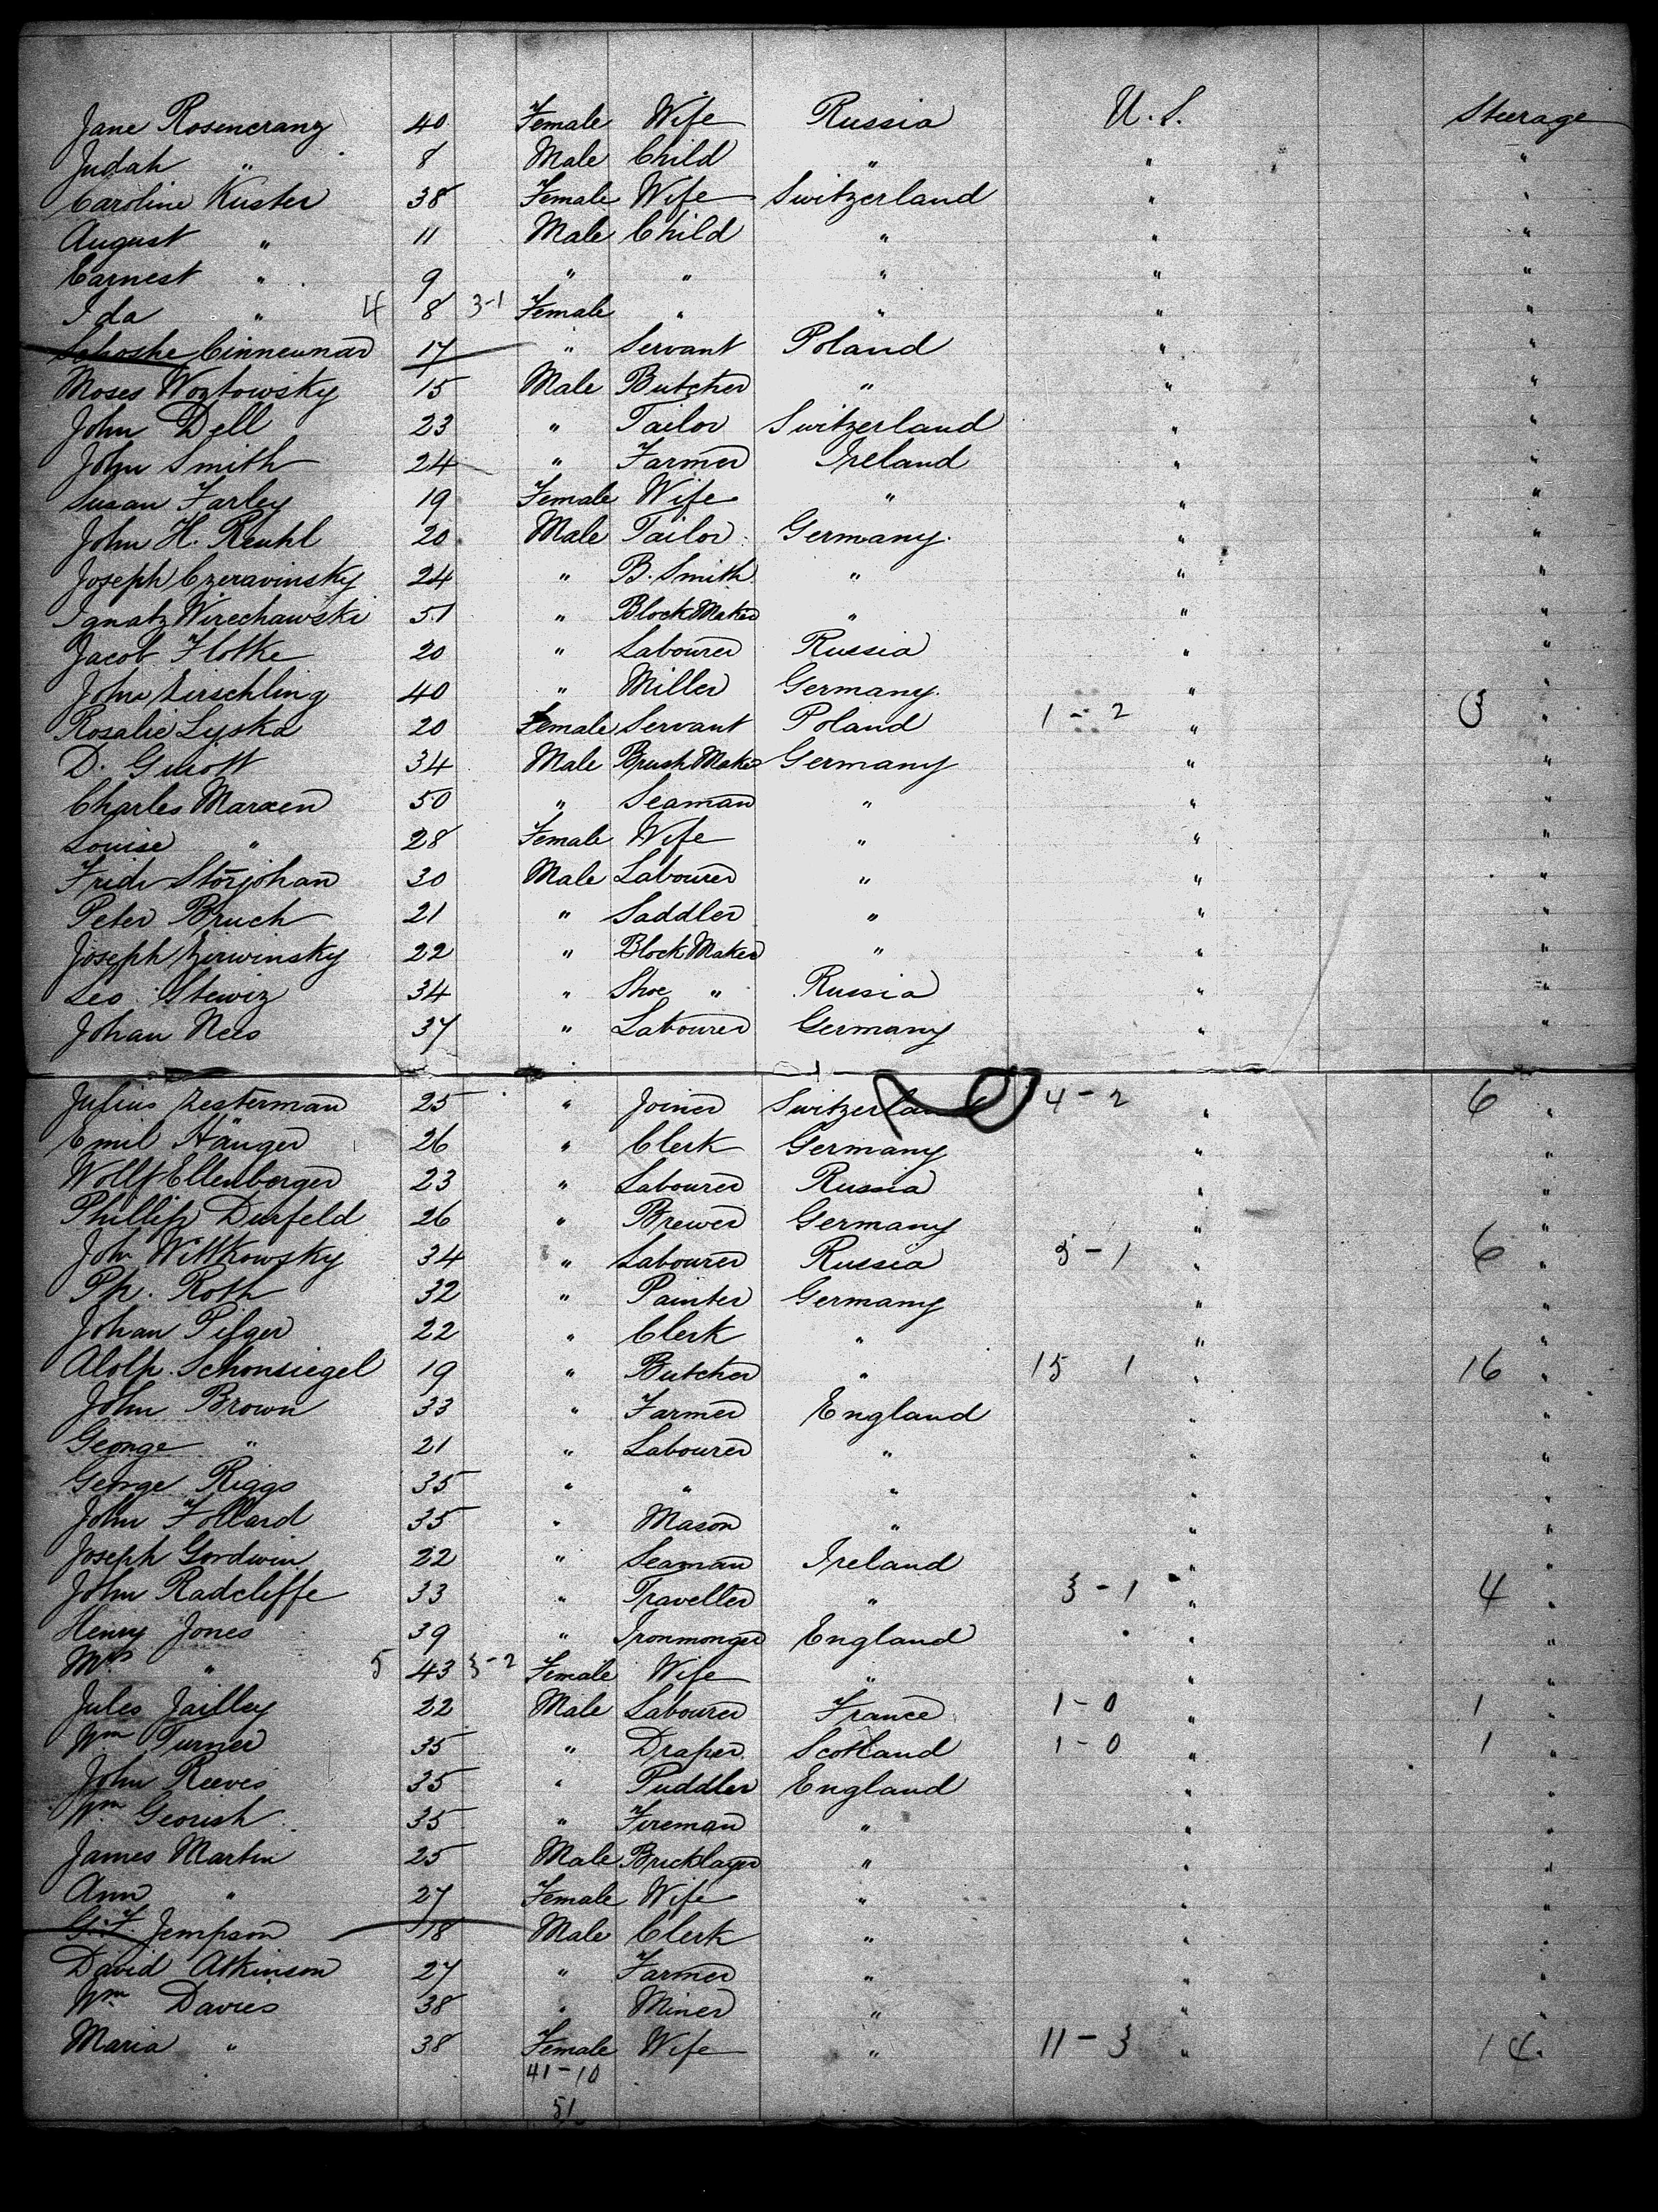 Jane Rosencranz 40 Female Wife Russia U.S. Steerage
Judah " 8 Male Child " " "
Caroline Kuster 38 Female Wife Switzerland " "
August " 11 Male Child " " "
Earnest " 9 " " " " "
Ida " 4 8 3-1 Female " " " "
Cinneunad 17 " Servant Poland " "
Moses Woztowsky 15 Male Butcher " " "
John Dell 23 " Tailor Switzerland " "
John Smith 24 " Farmer Ireland " "
Susan Farley 19 Female Wife " " "
John H. Reuhl 20 Male Tailor Germany " "
Joseph Czeravinsky 24 " B. Smith " " "
Ignatz Wirechawski 51 " Block Maker " " "
Jacob Flotke 20 " Labourer Russia " "
John Zirschling 40 " Miller Germany " "
Rosalie Lyska 20 Female Servant Poland 1-2 " 3 "
D. 34 Male Brush Maker Germany " "
Charles Marxen 50 " Seaman " " "
Louise " 28 Female Wife " " "
Fridr Störjohan 30 Male Labourer " " "
Peter Bruch 21 " Saddler " " "
Joseph Zirwinsky 22 " Block Maker " " "
Leo Stewiz 34 " Shoe " Russia " "
Johan Nees 37 " Labourer Germany " "
Julius Zesterman 25 " Joiner Switzerland 4-2 " 6 "
Emil Hänger 26 " Clerk Germany " "
Wolff Ellenberger 23 " Labourer Russia " "
Phillip Durfeld 26 " Brewer Germany " "
John Wittkowsky 34 " Labourer Russia 5-1 " 6 "
Ph. Roth 32 " Painter Germany " "
Johan Pilger 22 " Clerk " " "
Alolp. Schonsiegel 19 " Butcher " 15 1 " 16 "
John Brown 33 " Farmer England " "
George " 21 " Labourer " " "
George Riggs 35 " " " " "
John Follard 35 " Mason " " "
Joseph Gordwin 22 " Seaman Ireland " "
John Radcliffe 33 " Traveller " 3-1 " 4 "
Henry Jones 39 " Ironmonger England " "
Mrs " 5 43 3-2 Female Wife " " "
Jules Jailley 22 Male Labourer France 1-0 " 1 "
Wm Turner 35 " Draper Scotland 1-0 " 1 "
John Reeves 35 " Puddler England " "
Wm Georish 35 " Fireman " " "
James Martin 25 Male Bricklayer " " "
Ann " 27 Female Wife " " "
G.F. Jempson 18 Male Clerk " " "
David Atkinson 27 " Farmer " " "
Wm Davies 38 " Miner " " "
Maria " 38 Female Wife " 11-3 " 14 "
41-10
51